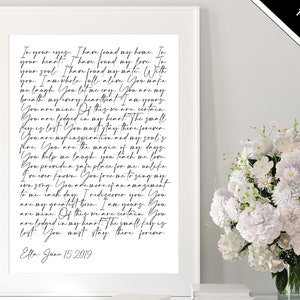 In your eyes, I have found my home. In
your heart, I have found my love. In
your soul, I have found my mate. With
you, I am whole, full, alive. You make
me laugh. You let me cry. You are my
breath, my every heartbeat. I am yours.
You are mine. Of this we are certain.
You are lodged in my heart. The small
key is lost. You must stay there forever.
You are my inspiration and my soul's
fire. You are the magic of my days.
You help me laugh, you teach me love.
You provide a safe place for me unlike
I've ever known. You free me to sing my
own song. You are more of an amazement
to me each day. I rediscover you. You
are my greatest boon. I am yours. You
are mine. Of this we are certain. You
are lodged in my heart. The small key is
lost. You must stay there forever.
Ella June 15, 2019